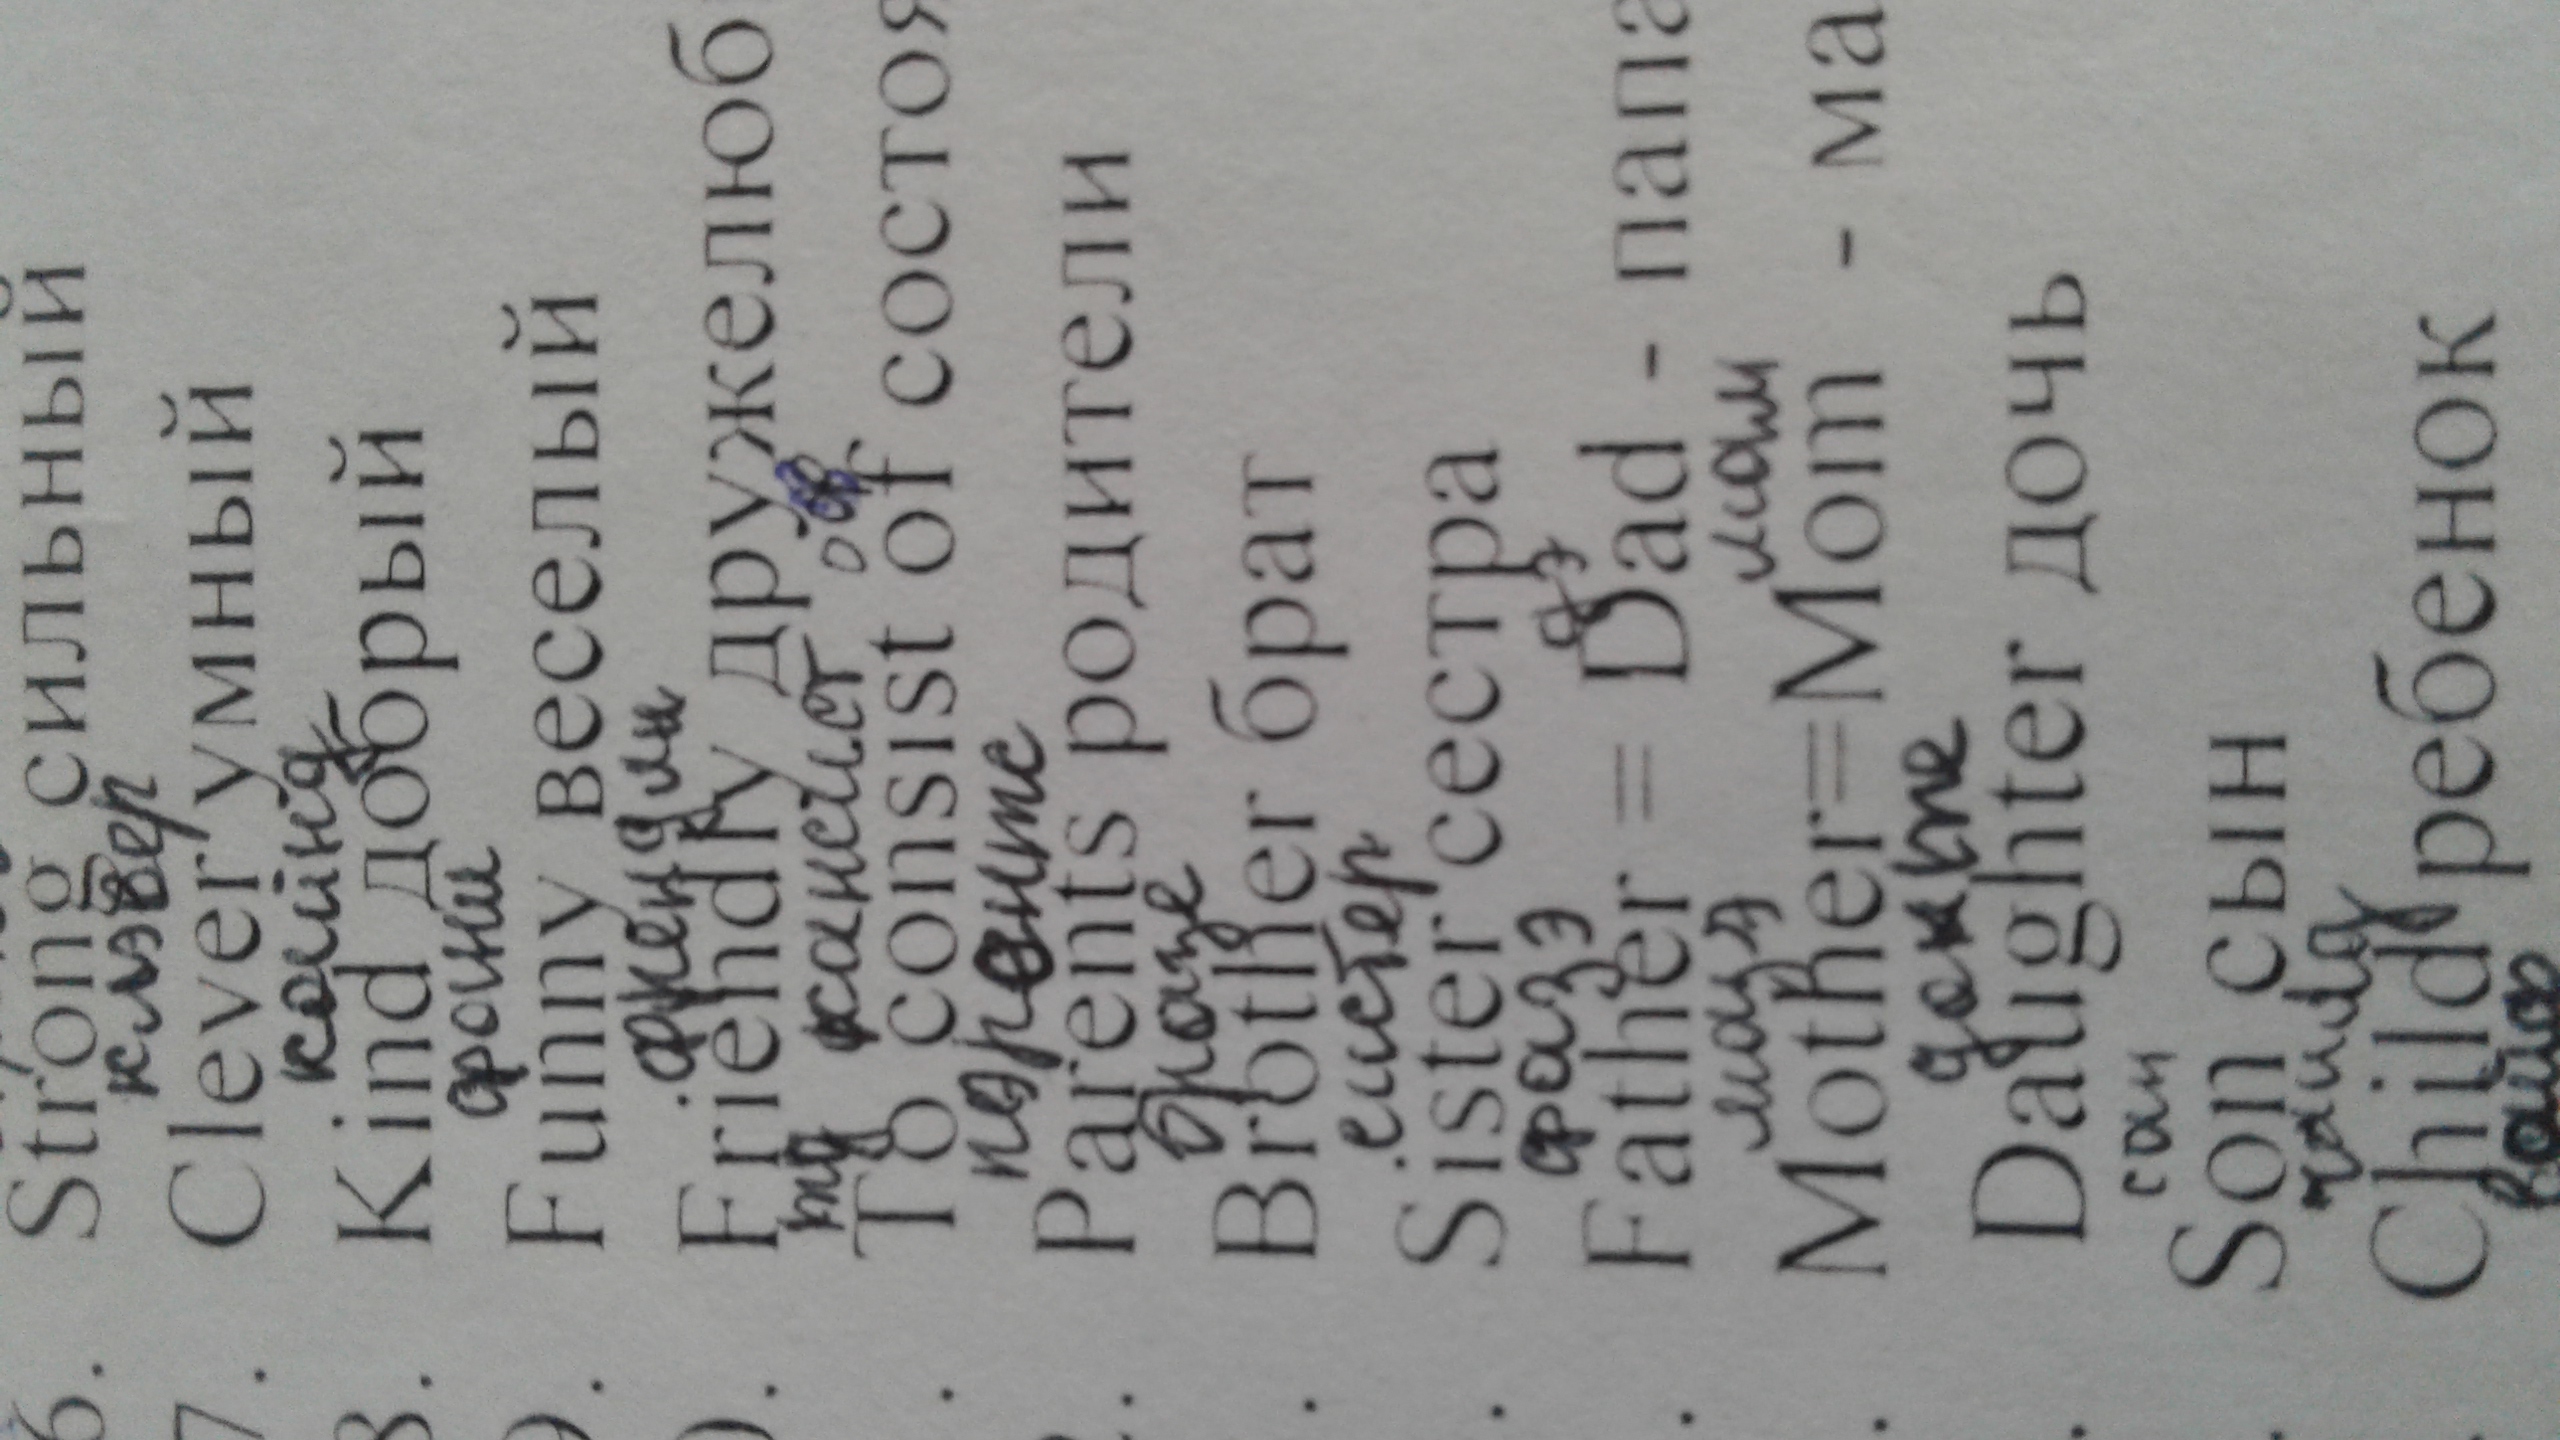 6. Strong сильный
клэвер
7. Clever умный
кайнд
8. Kind добрый
фани
9. Funny веселый
френдли
Friendly дружелюб
ту кансист оф
To consist of состоя
пэрентс
Parents родители
Brother брат
систер
Sister сестра
фазэ дэ
Father = Dad - папа
мазэ мам
Mother=Mom - ма
Daughter дочь
сан
Son сын
чаилд
Child ребенок